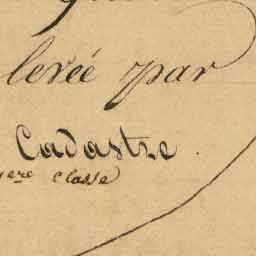 levée par
Cadastre.
1ere classe